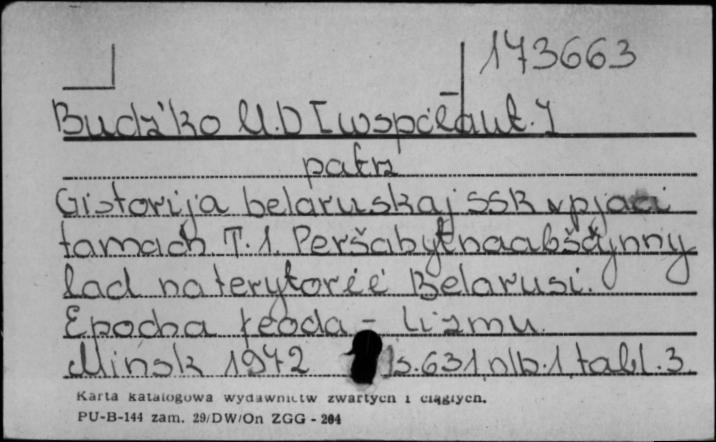 173663
Budz'ko U.D [współaut.]
patrz
Gistoryja belaruskaj SSR v pjaci
tamach T.1. Peršabytnaabščynny
lad na terytorii Belarusi.
Epocha feoda-lizmu.
Minsk 1972 s.631, nlb.1, tabl.3.
Karta katalogowa wydawnictw zwartych i ciągłych.
PU-B-144 zam. 29/DW/On ZGG - 204